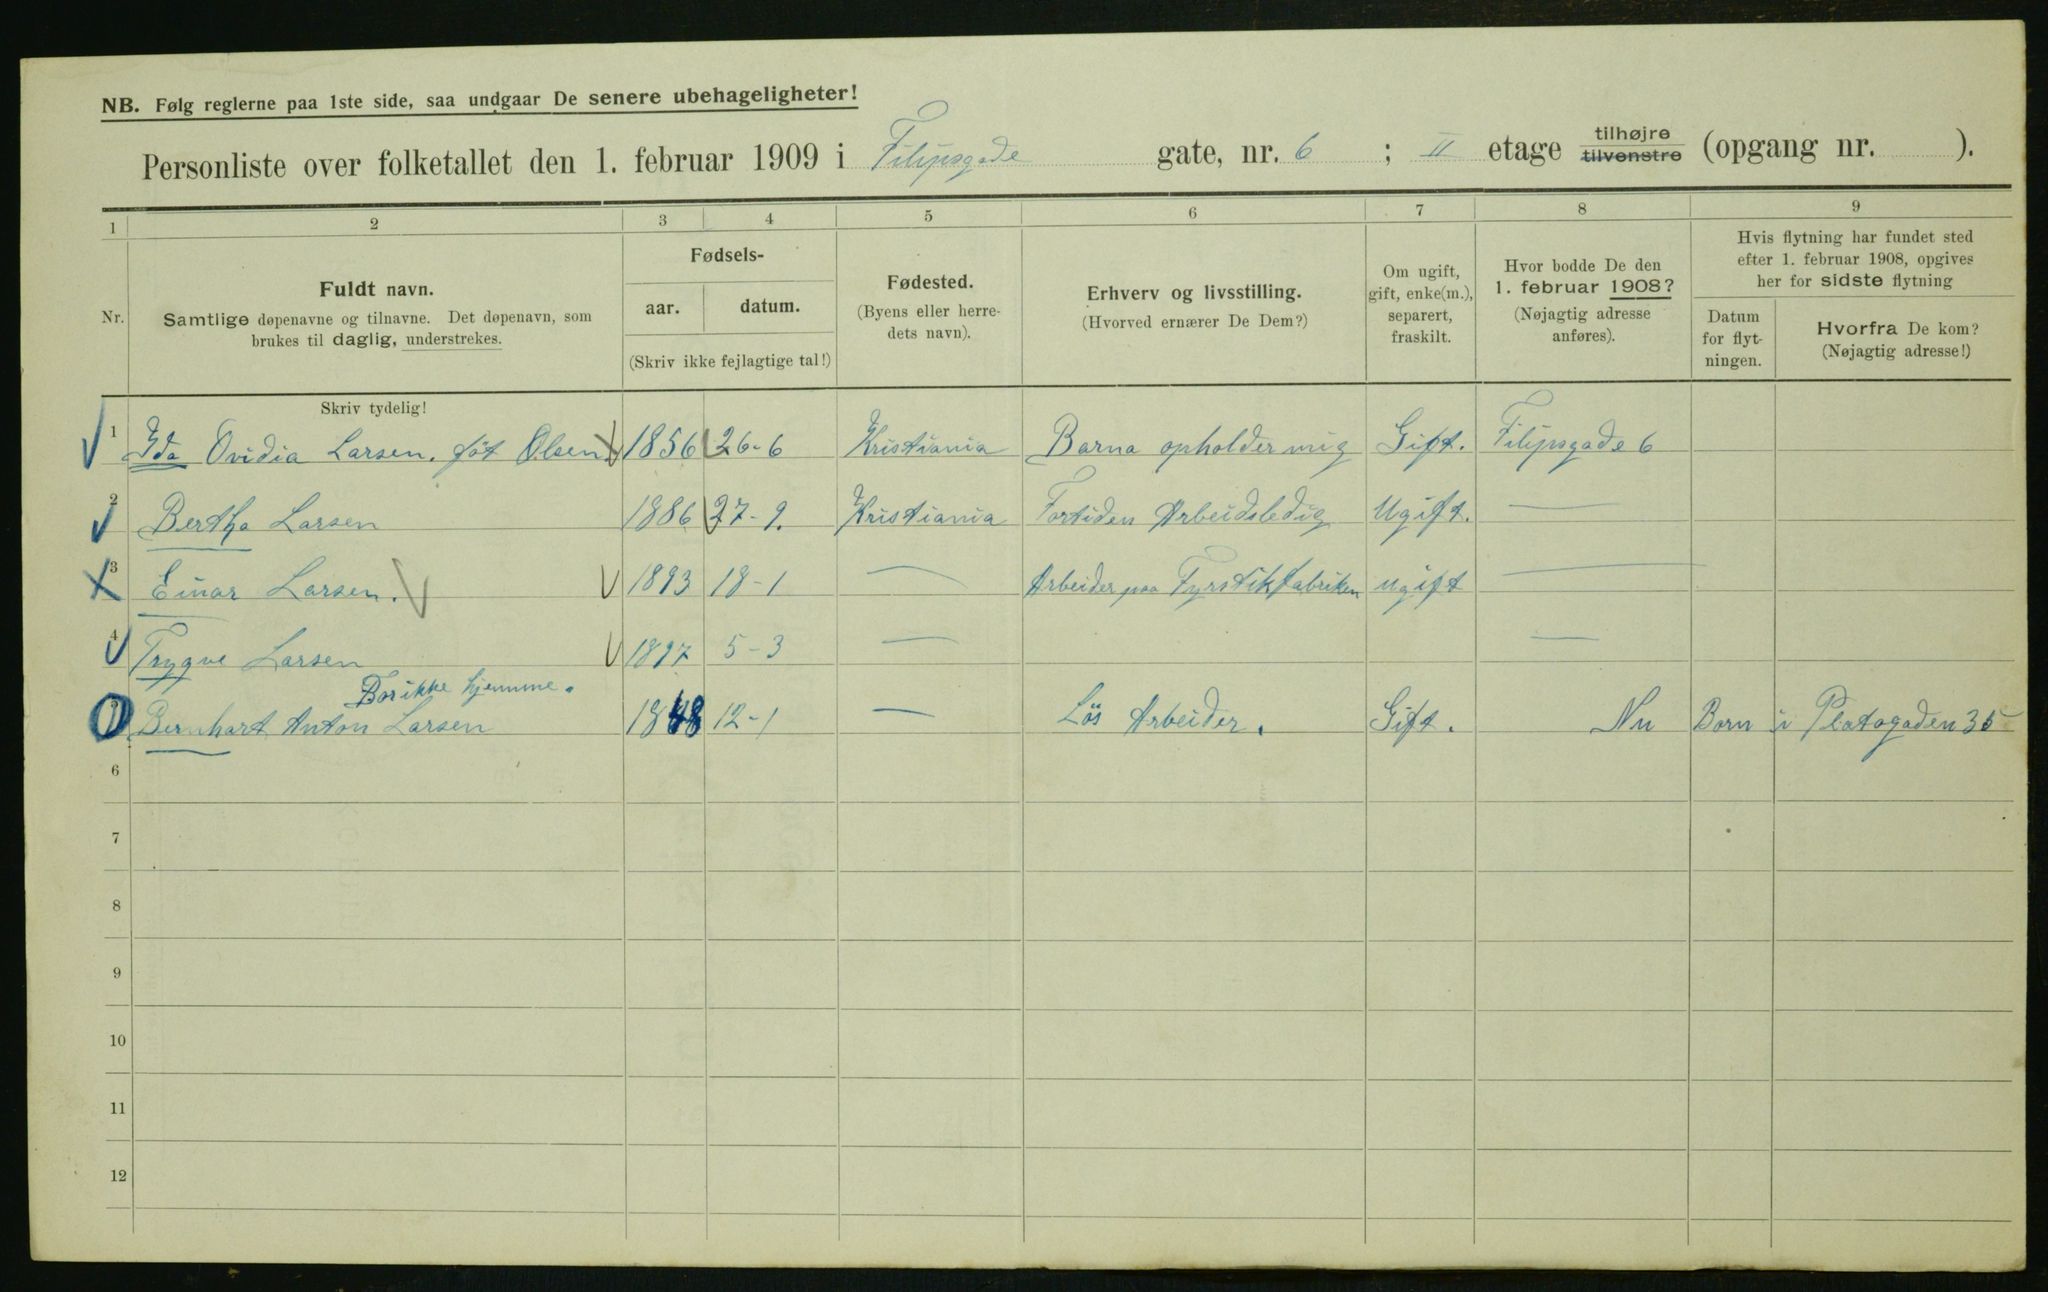 NB. Følg reglerne paa 1ste side, saa undgaar De senere ubehageligheter!
Personliste over folketallet den 1. februar 1909 i Filipsgade gate, nr. 6 ; II etage tilhøjre tilvenstre (opgang nr. ).
1 2 3 4 5 6 7 8 9
Nr.
Fuldt navn.
Samtlige døpenavne og tilnavne. Det døpenavn, som
brukes til daglig, understrekes.
Fødsels-
aar. datum.
(Skriv ikke fejlagtige tal!)
Fødested.
(Byens eller herre-
dets navn).
Erhverv og livsstilling.
(Hvorved ernærer De Dem?)
Om ugift,
gift, enke(m.),
separert,
fraskilt.
Hvor bodde De den
1. februar 1908?
(Nøjagtig adresse
anføres).
Hvis flytning har fundet sted
efter 1. februar 1908, opgives
her for sidste flytning
Datum
for flyt-
ningen.
Hvorfra De kom?
(Nøjagtig adresse!)
Skriv tydelig!
1 Ida Ovidia Larsen. föt Olsen 1856 26-6 Kristiania Barna opholder mig Gift. Filipsgade 6
2 Bertha Larsen 1886 27-9. Kristiania Fortiden Arbeidsledig Ugift. —
3 Einar Larsen. 1893 18-1 — Arbeider paa Fyrstikfabriken ugift —
4 Trygve Larsen 1897 5-3 — —
Bor ikke hjemme.
5 Bernhart Anton Larsen 1848 12-1 — Lös Arbeider. Gift. Nu Born i Platogaden 35
6
7
8
9
10
11
12